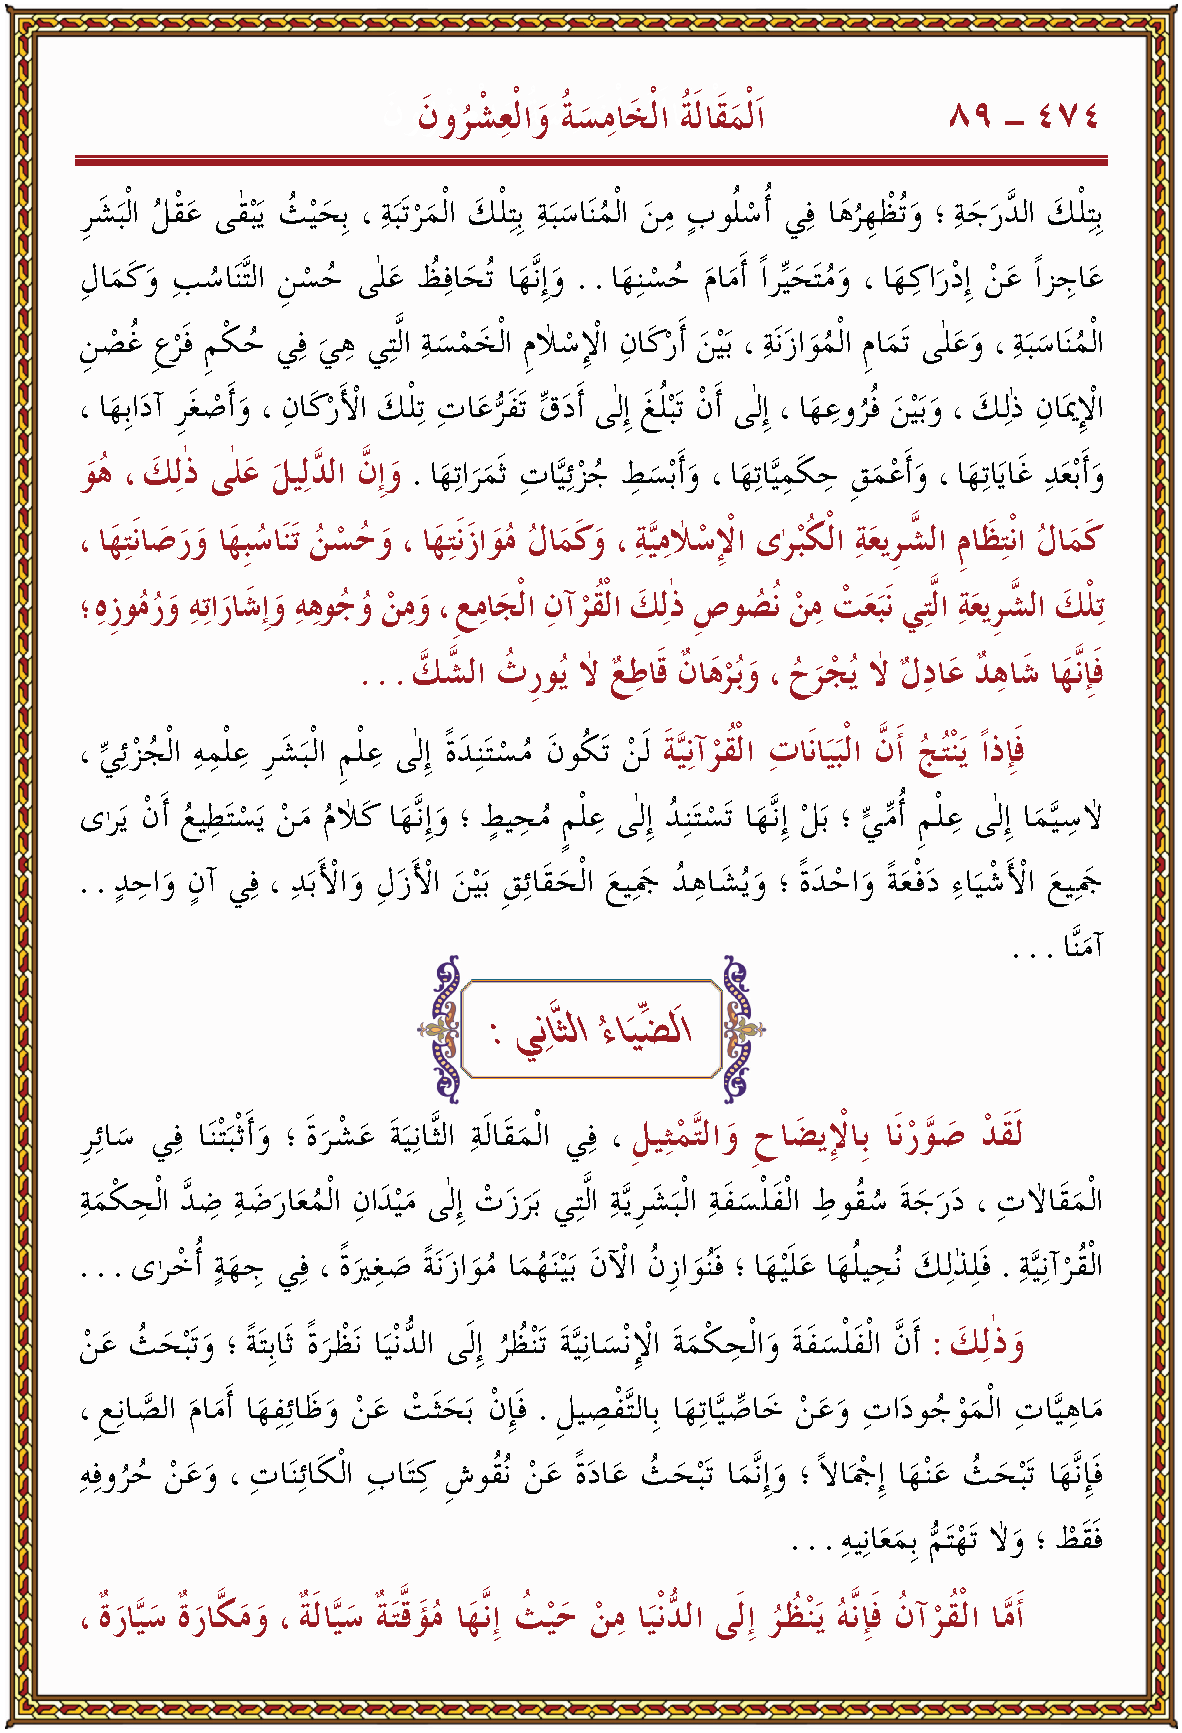 ٤٧٤ – ٨٩ اَلْمَقَالَةُ الْخَامِسَةُ وَالْعِشْرُونَ
بِتِلْكَ الدَّرَجَةِ ؛ وَتُظْهِرُهَا فِي أُسْلُوبٍ مِنَ الْمُنَاسَبَةِ بِتِلْكَ الْمَرْتَبَةِ ، بِحَيْثُ يَبْقٰى عَقْلُ الْبَشَرِ
عَاجِزاً عَنْ إِدْرَاكِهَا ، وَمُتَحَيِّراً أَمَامَ حُسْنِهَا . . وَإِنَّهَا تُحَافِظُ عَلٰى حُسْنِ التَّنَاسُبِ وَكَمَالِ
الْمُنَاسَبَةِ ، وَعَلٰى تَمَامِ الْمُوَازَنَةِ ، بَيْنَ أَرْكَانِ الْإِسْلَامِ الْخَمْسَةِ الَّتِي هِيَ فِي حُكْمِ فَرْعِ غُصْنِ
الْإِيمَانِ ذٰلِكَ ، وَبَيْنَ فُرُوعِهَا ، إِلٰى أَنْ تَبْلُغَ إِلٰى أَدَقِّ تَفَرُّعَاتِ تِلْكَ الْأَرْكَانِ ، وَأَصْغَرِ آدَابِهَا ،
وَأَبْعَدِ غَايَاتِهَا ، وَأَعْمَقِ حِكَمِيَّاتِهَا ، وَأَبْسَطِ جُزْئِيَّاتِ ثَمَرَاتِهَا . وَإِنَّ الدَّلِيلَ عَلٰى ذٰلِكَ ، هُوَ
كَمَالُ انْتِظَامِ الشَّرِيعَةِ الْكُبْرٰى الْإِسْلَامِيَّةِ ، وَكَمَالُ مُوَازَنَتِهَا ، وَحُسْنُ تَنَاسُبِهَا وَرَصَانَتِهَا ،
تِلْكَ الشَّرِيعَةِ الَّتِي نَبَعَتْ مِنْ نُصُوصِ ذٰلِكَ الْقُرْآنِ الْجَامِعِ ، وَمِنْ وُجُوهِهِ وَإِشَارَاتِهِ وَرُمُوزِهِ ؛
فَإِنَّهَا شَاهِدٌ عَادِلٌ لَا يُجْرَحُ ، وَبُرْهَانٌ قَاطِعٌ لَا يُورِثُ الشَّكَّ . . .
فَإِذاً يُنْتَجُ أَنَّ الْبَيَانَاتِ الْقُرْآنِيَّةَ لَنْ تَكُونَ مُسْتَنَدَةً إِلٰى عِلْمِ الْبَشَرِ عِلْمِهِ الْجُزْئِيِّ ،
لَاسِيَّمَا إِلٰى عِلْمِ أُمِّيٍّ ؛ بَلْ إِنَّهَا تَسْتَنِدُ إِلٰى عِلْمٍ مُحِيطٍ ؛ وَإِنَّهَا كَلَامُ مَنْ يَسْتَطِيعُ أَنْ يَرٰى
جَمِيعَ الْأَشْيَاءِ دَفْعَةً وَاحْدَةً ؛ وَيُشَاهِدُ جَمِيعَ الْحَقَائِقِ بَيْنَ الْأَزَلِ وَالْأَبَدِ ، فِي آنٍ وَاحِدٍ . .
آمَنَّا . . .
اَلضِّيَاءُ الثَّانِي :
لَقَدْ صَوَّرْنَا بِالْإِيضَاحِ وَالتَّمْثِيلِ ، فِي الْمَقَالَةِ الثَّانِيَةَ عَشْرَةَ ؛ وَأَثْبَتْنَا فِي سَائِرِ
الْمَقَالَاتِ ، دَرَجَةَ سُقُوطِ الْفَلْسَفَةِ الْبَشَرِيَّةِ الَّتِي بَرَزَتْ إِلٰى مَيْدَانِ الْمُعَارَضَةِ ضِدَّ الْحِكْمَةِ
الْقُرْآنِيَّةِ . فَلِذٰلِكَ نُحِيلُهَا عَلَيْهَا ؛ فَنُوَازِنُ الْآنَ بَيْنَهُمَا مُوَازَنَةً صَغِيرَةً ، فِي جِهَةٍ أُخْرٰى . . .
وَذٰلِكَ : أَنَّ الْفَلْسَفَةَ وَالْحِكْمَةَ الْإِنْسَانِيَّةَ تَنْظُرُ إِلَى الدُّنْيَا نَظْرَةً ثَابِتَةً ؛ وَتَبْحَثُ عَنْ
مَاهِيَّاتِ الْمَوْجُودَاتِ وَعَنْ خَاصِّيَّاتِهَا بِالتَّفْصِيلِ . فَإِنْ بَحَثَتْ عَنْ وَظَائِفِهَا أَمَامَ الصَّانِعِ ،
فَإِنَّهَا تَبْحَثُ عَنْهَا إِجْمَالاً ؛ وَإِنَّمَا تَبْحَثُ عَادَةً عَنْ نُقُوشِ كِتَابِ الْكَائِنَاتِ ، وَعَنْ حُرُوفِهِ
فَقَطْ ؛ وَلَا تَهْتَمُّ بِمَعَانِيهِ . . .
أَمَّا الْقُرْآنُ فَإِنَّهُ يَنْظُرُ إِلَى الدُّنْيَا مِنْ حَيْثُ إِنَّهَا مُؤَقَّتَةٌ سَيَّالَةٌ ، وَمَكَّارَةٌ سَيَّارَةٌ ،